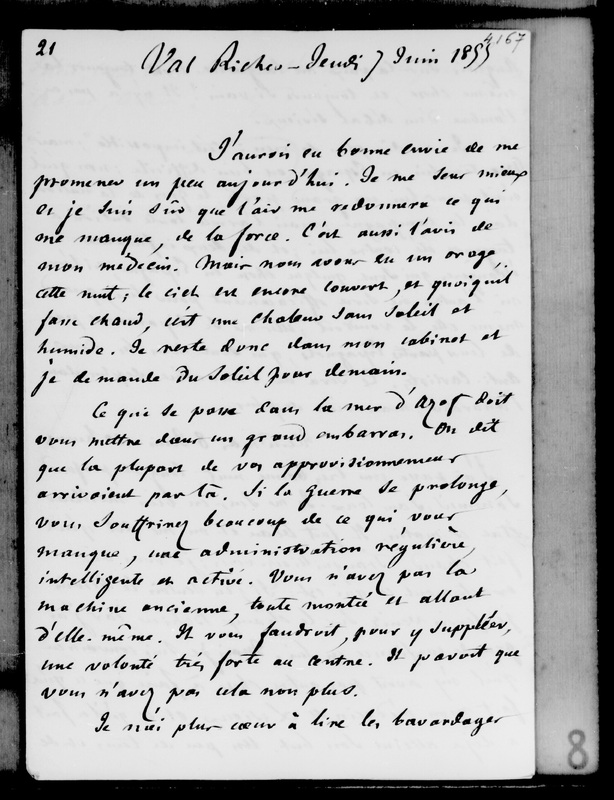 21
4167
Val Richer - Jeudi 7 Juin 1855
J'aurois eu bonne envie de me
promener un peu aujourd'hui. Je me sens mieux
et je suis sûr que l'air me redonnera ce qui
me manque, de la force. C'est aussi l'avis de
mon médecin. Mais nous avons eu un orage
cette nuit ; le ciel est encore couvert, et quoiqu'il
fasse chaud, c'est une chaleur sans soleil et
humide. Je reste donc dans mon cabinet et
je demande du soleil pour demain.
Ce que se passe dans la mer d'Azof doit
vous mettre dans un grand embarras. On dit
que la plupart de vos approvisionnemens
arrivoient par là. Si la guerre se prolonge,
vous souffrirez beaucoup de ce qui vous
manque, une administration régulière,
intelligente et active. Vous n'avez pas la
machine ancienne, toute montée et allant
d'elle-même. Il vous faudroit, pour y suppléer,
une volonté très forte au centre. Il paroit que
vous n'avez pas cela non plus.
Je n'ai plus cœur à lire les bavardages
8